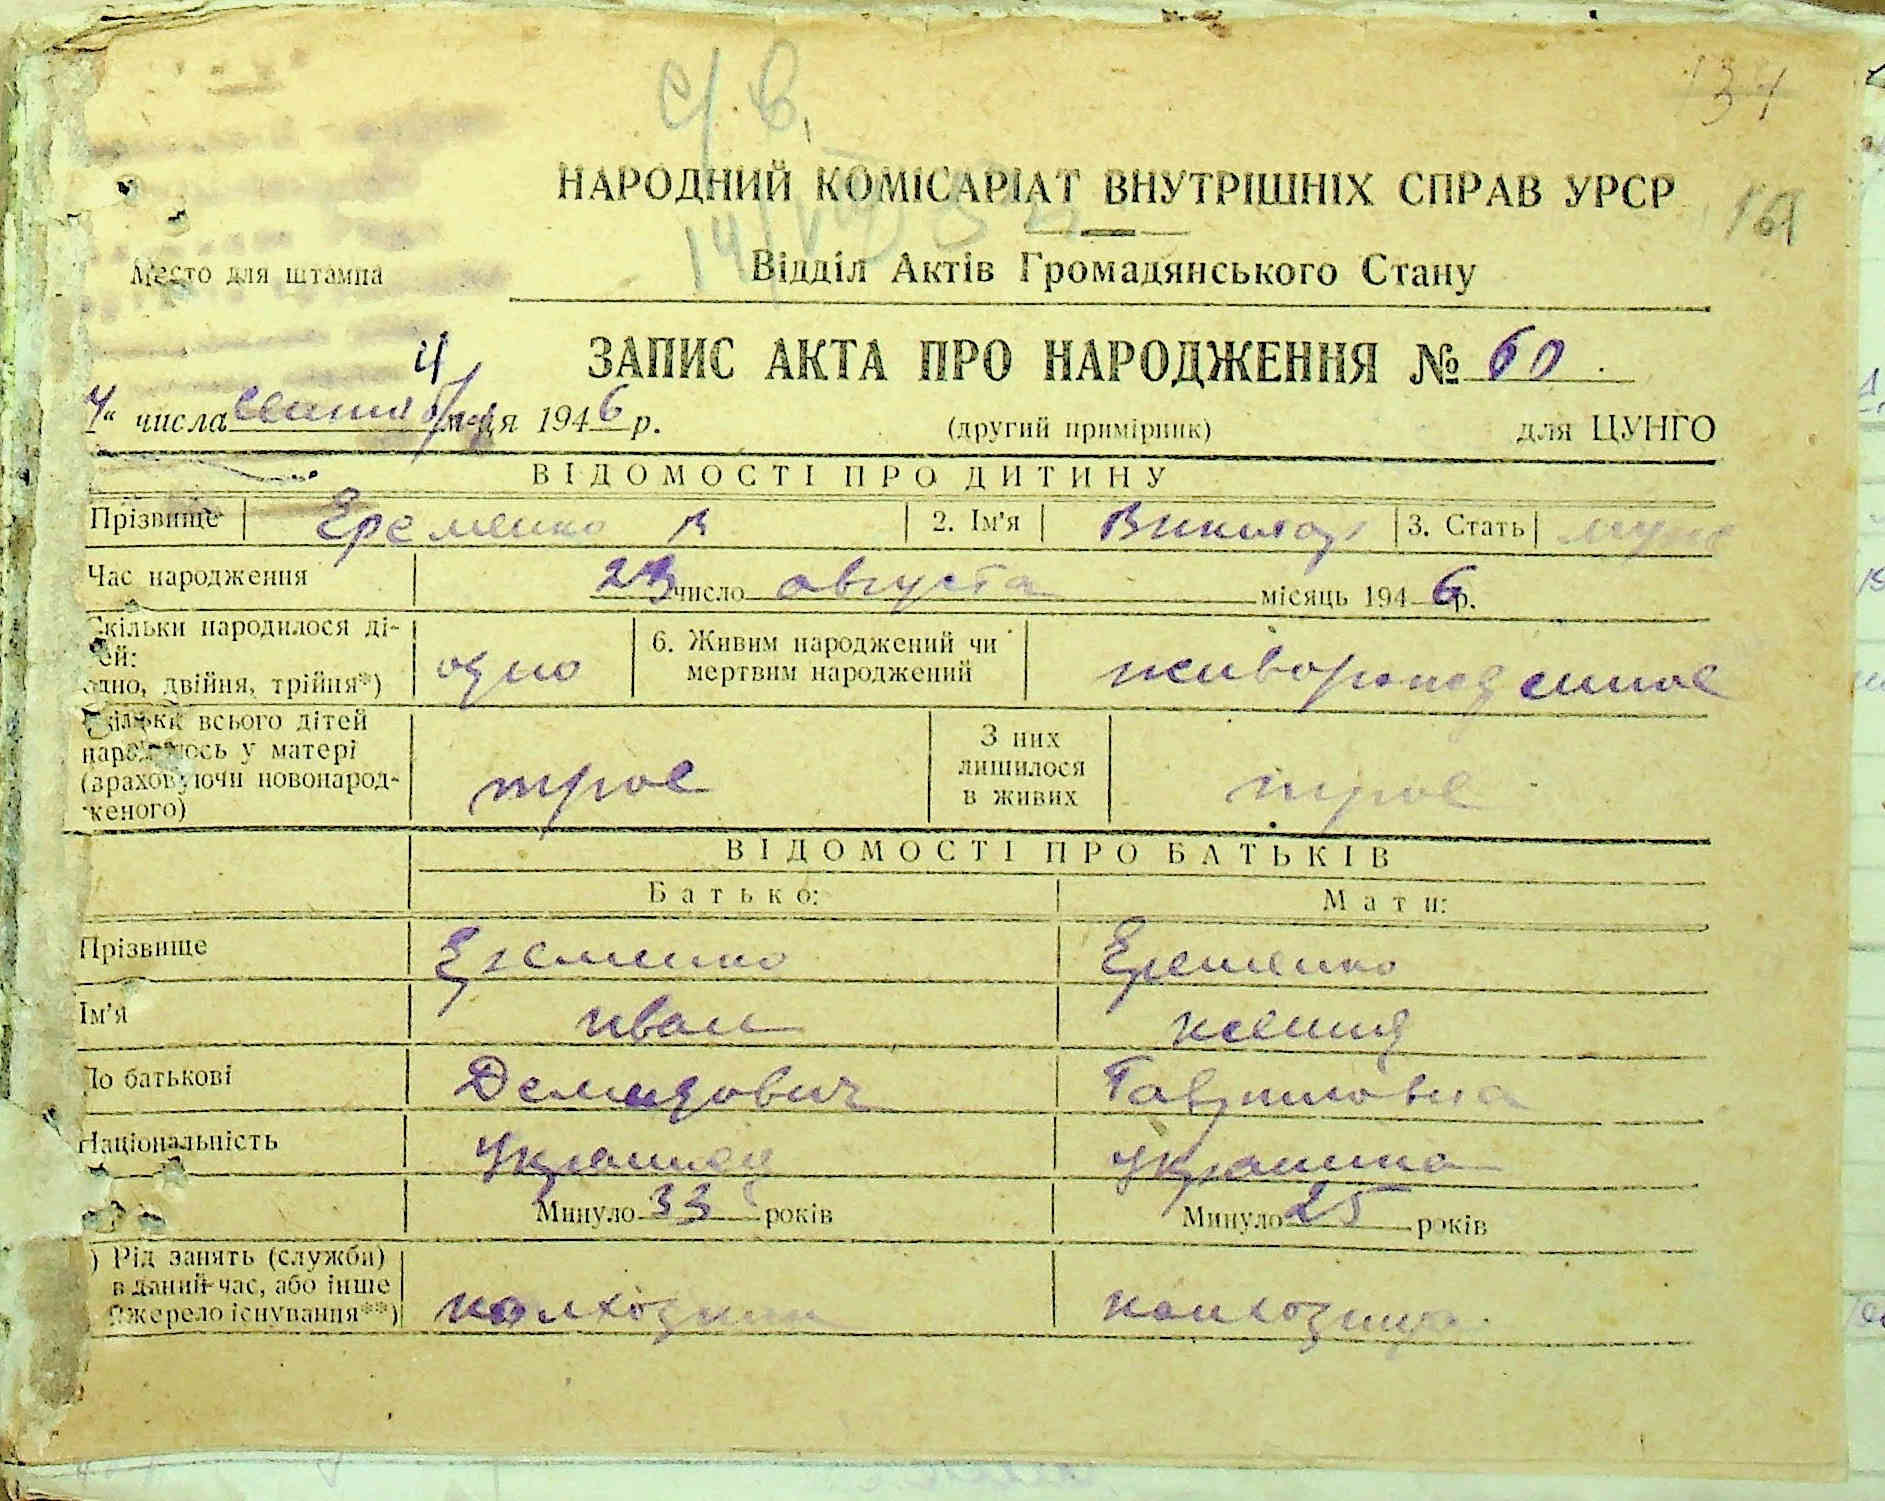 134
НАРОДНИЙ КОМІСАРІАТ ВНУТРІШНІХ СПРАВ УРСР
Место для штампа
Відділ Актів Громадянського Стану
ЗАПИС АКТА ПРО НАРОДЖЕННЯ № 60
4 " числа сентября м-ця 1946 р. (другий примірник) для ЦУНГО
ВІДОМОСТІ ПРО ДИТИНУ
Прізвище Еременко 2. Ім'я 3. Стать муж
Час народження 23 число августа місяць 1946 р.
Скільки народилося ді-
тей:
одно, двійня, трійня*) одно 6. Живим народжений чи
мертвим народжений живорожденное
Скільки всього дітей
народилось у матері
(враховуючи новонарод-
женого) трое З них
лишилося
в живих трое
ВІДОМОСТІ ПРО БАТЬКІВ
Батько: Мати:
Прізвище Еременко Еременко
Ім'я Иван Ксения
По батькові Демидович Гавриловна
Національність Украинец Украинка
Минуло 33 років Минуло 25 років
) Рід занять (служби)
в даний час, або інше
джерело існування**) колхозник колхозница